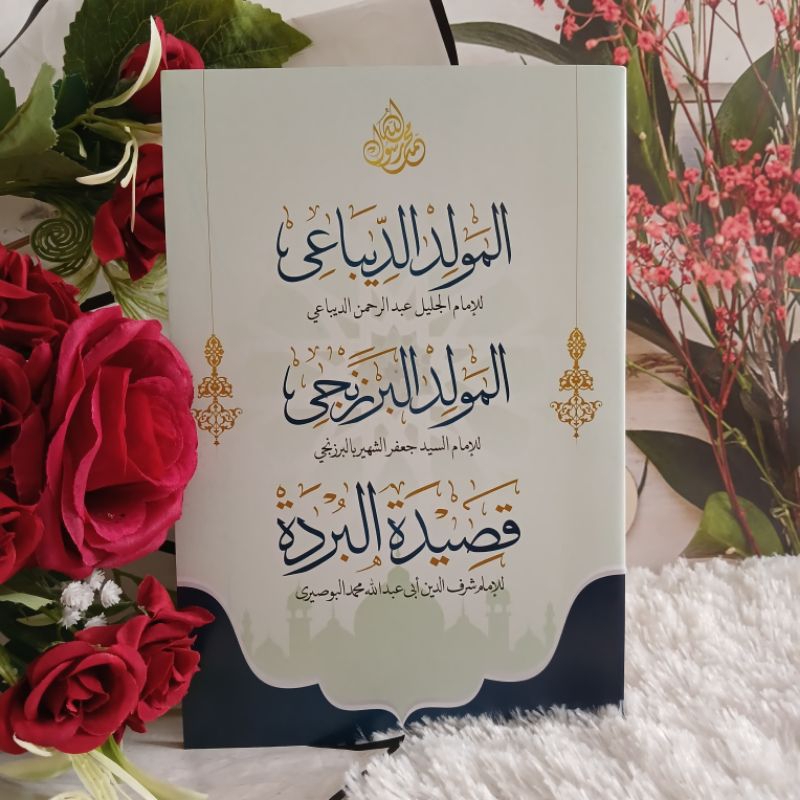 محمد رسول الله
المَولِد الدِّيبَاعِى
للإمام الجليل عبد الرحمن الديباعي
المَولِد البَرزَنجِى
للإمام السيد جعفر الشهير بالبرزنجي
قَصِيدَة البُردَة
للإمام شرف الدين أبى عبد الله محمد البوصيرى